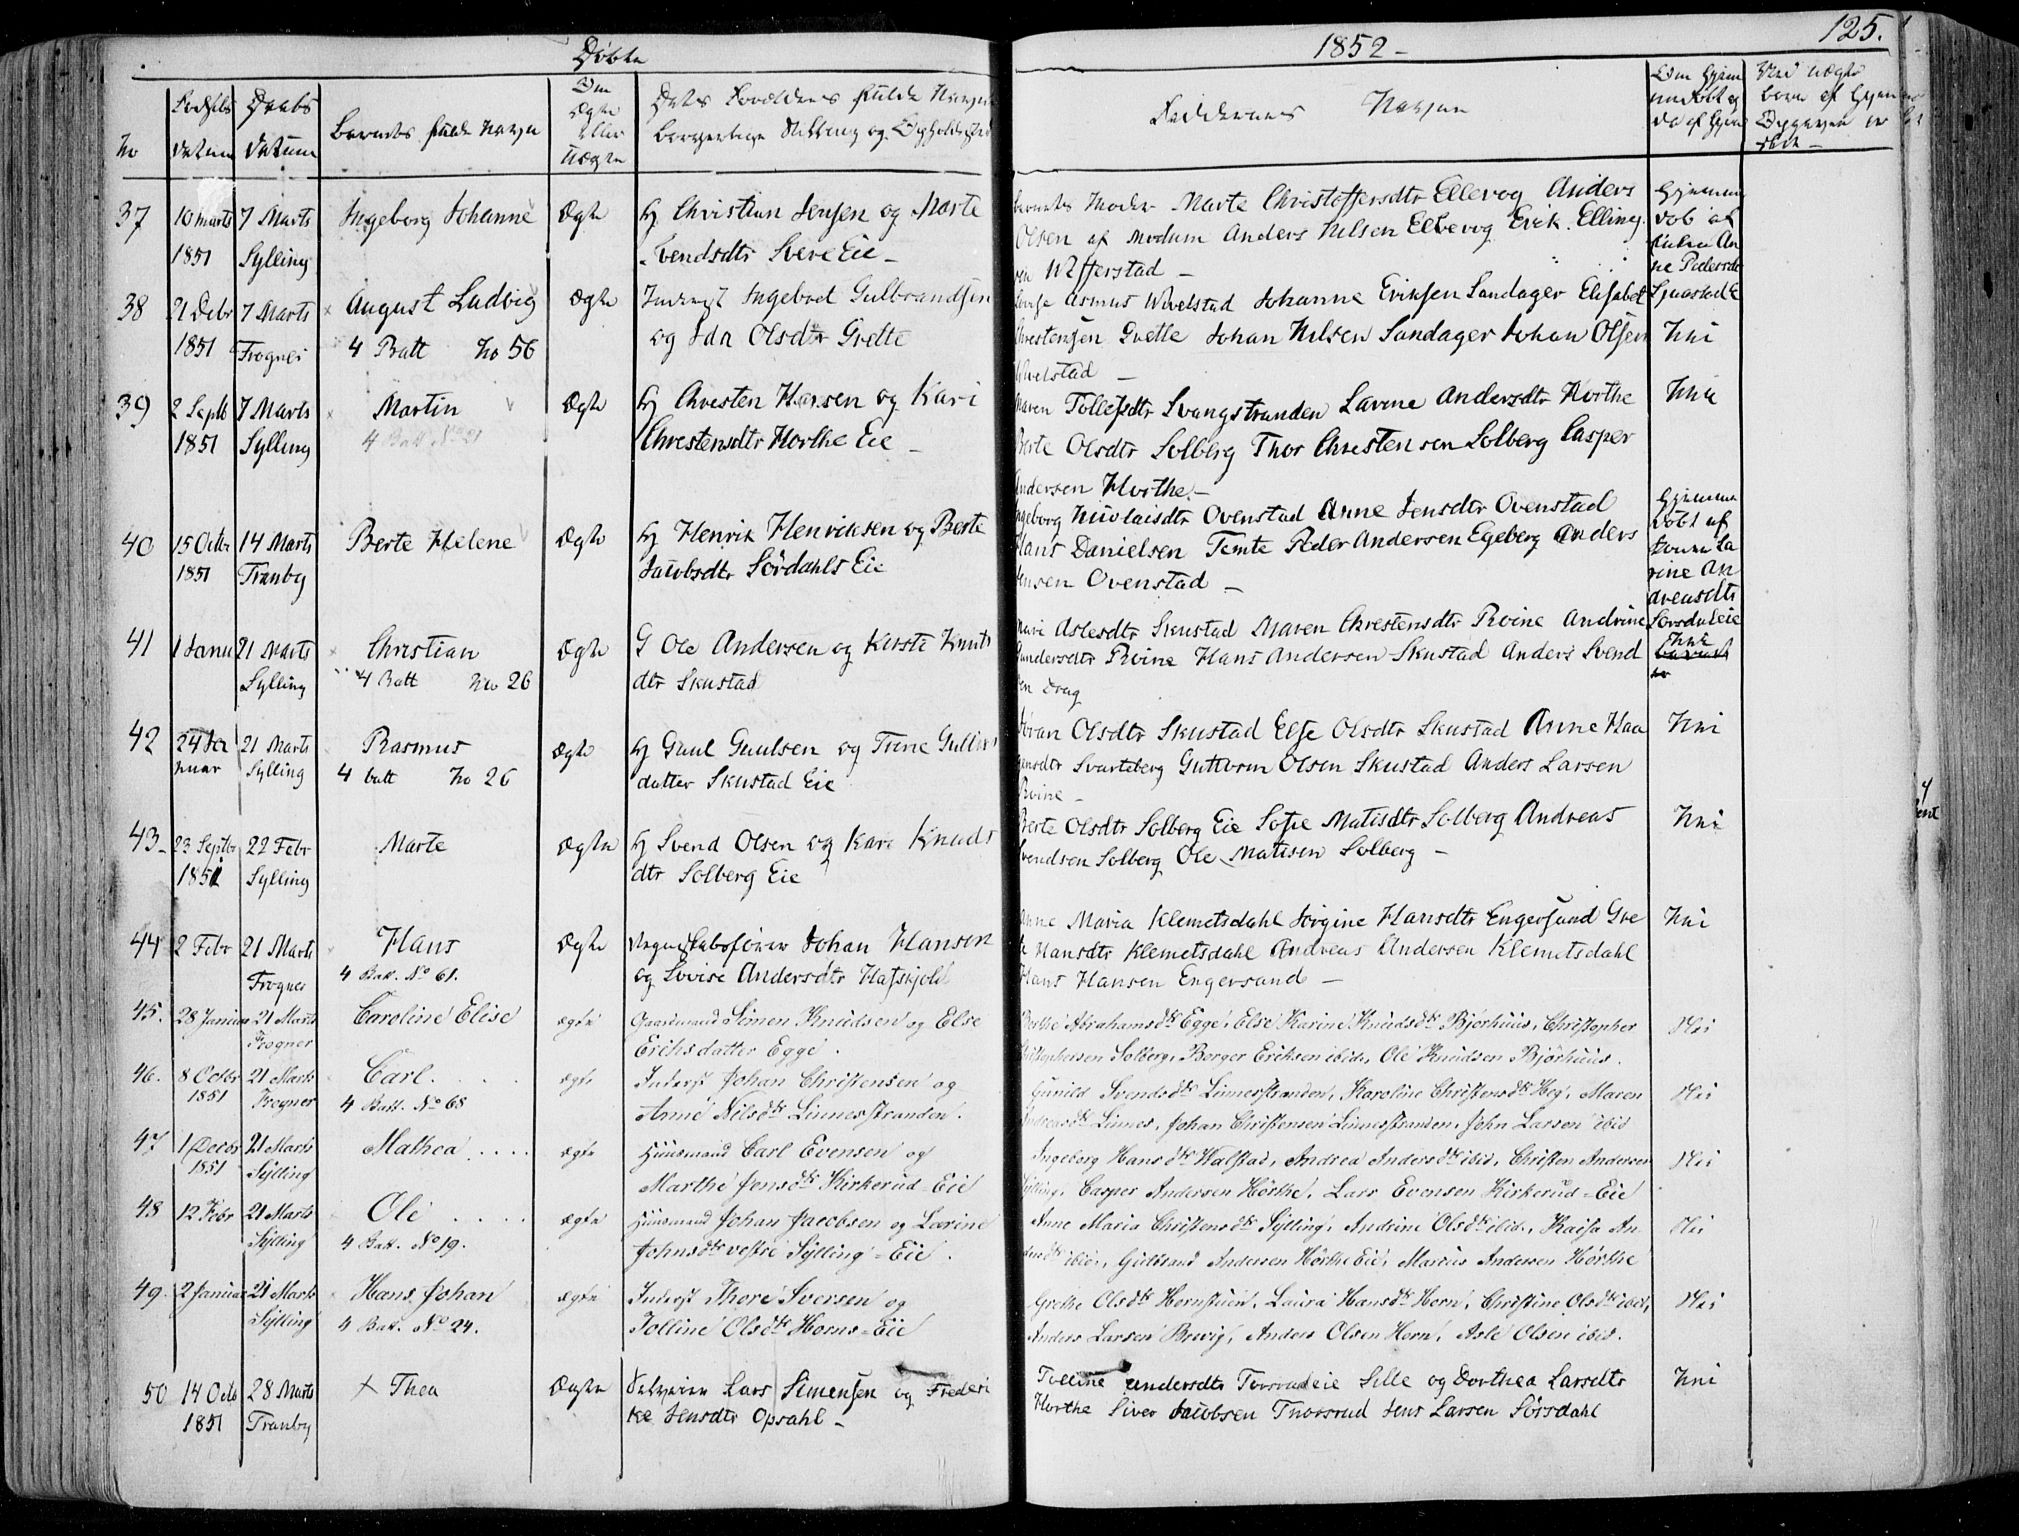 Døbte
1852 -
125.
No
Fødsels datum
Daabs datum
Barnets fulde Navn
Om Ægte eller Uægte
Dets Forældres fulde Navn
borgerlige Stilling og Opholdssted
Faddernes Navne
37 10 Marts 7 Marts Ingeborg Johanne Ægte Hj Christian Jensen og Marte
1851 Sylling Svendsdtr Svere Eie -
Barnets Moder Marte Christoffersdtr Ellevog Anders
Olsen af Modum Anders Nilsen Ellevog Erik Elling
38 21 Debr 7 Marts August Ludvig Ægte Inderst Ingebret Gulbrandsen
1851 Frogner 4 Batt No 56 og Ida Olsdtr Grette
Asmus Wivelstad Johanne Eriksen Sandager Elisabet
Christensen Grette Johan Nilsen Sandager Johan Olsen Nei
Wivelstad -
39 2 Septb 7 Marts Martin Ægte Hj Christen Hansen og Kari
1851 Sylling 4 Batt No 21 Christensdtr Horthe Eie -
Maren Tollefsdtr Svangstranden Lavine Andersdtr Horthe Nei
Berte Olsdtr Solberg Thor Christensen Solberg Casper
Andersen Horthe -
40 15 Octbr 14 Marts Berte Helene Ægte Hj Henrik Henriksen og Berte
1851 Tranby Jacobsdtr Sørdahls Eie
Ingeborg Nicolaisdtr Ovenstad Anne Jensdtr Ovenstad
Hans Danielsen Temte Peder Andersen Egeberg Anders
Jensen Ovenstad -
41 1 Janu 21 Marts Christian Ægte G Ole Andersen og Kirste Knuts
Sylling 4 Batt No 26 dtr Skustad
Mari Aslesdtr Skustad Maren Christensdtr Roine Andrine
Gundersdtr Roine Hans Andersen Skustad Anders Svend
sen Drag
42 24 Ja 21 Marts Rasmus Ægte Hj Paul Paulsen og Trine Gulbrs
nuar Sylling 4 batt No 26 datter Skustad Eie
Jøran Olsdtr Skustad Else Olsdtr Skustad Anne Haa Nei
gensdtr Svarteberg Guttorm Olsen Skustad Anders Larsen
Roine -
43 - 23 Septbr 22 Febr Marte Ægte Hj Svend Olsen og Kari Knuds
1851 Sylling dtr Solberg Eie
Berte Olsdtr Solberg Eie Sofie Matisdtr Solberg Andreas Nei
Svendsen Solberg Ole Matisen Solberg -
44 2 Febr 21 Marts Hans Ægte Regnskabsfører Johan Hansen
Frogner 4 Batt. No 61. og Lovise Andersdtr Hafskjold
Anne Maria Klemetsdahl Jørgine Hansdtr Engersund Gre Nei
te Hansdtr Klemetsdahl Andreas Andersen Klemetsdahl
Hans Hansen Engersand -
45. 28 Januar 21 Marts Caroline Elise ægte Gaardmand Simen Knudsen og Else
Frogner Erichsdatter Egge.
Berthe Abrahamsdtr Egge, Else Karine Knudsdtr Bjørhuus, Christopher Nei
Christophersen Solberg, Børger Eriksen ibid, Ole Knudsen Bjørhuus.
46. 8 Octbr 21 Marts Carl. ægte Inderst Johan Christensen og
1851 Frogner 4 Batt. No 68 Anne Nilsdtr Linnesstranden.
Gunild Svendsdtr Linnesstranden, Karoline Christensdtr Heg, Maren Nei
Andreasdtr Linnes, Johan Christensen Linnesstranden, John Larsen ibid
47 1 Decbr 21 Marts Mathea ægte Huusmand Carl Evensen og
1851 Sylling Marthe Jensdtr Kirkerud-Eie
Ingeborg Hansdtr Walstad, Andrea Andersdtr ibid, Christen Andersen Nei
Sylling, Casper Andersen Hörthe, Lars Evensen Kirkerud-Eie
48 12 Febr 21 Marts Ole ægte Huusmand Johan Jacobsen og Lavine
Sylling 4 Batt. No 19. Johnsdtr vestre Sylling-Eie.
Anne Maria Christensdtr Sylling, Andrine Olsdtr ibid, Kaisa An- Nei
dersdtr ibid, Gulbrand Andersen Hörthe Eie, Marius Andersen Hörthe
49. 2 Januar 21 Marts Hans Johan ægte Inderst Thore Iversen og
Sylling 4 Batt. No 24. Jolline Olsdtr Horns-Eie
Grethe Olsdtr Hornstuen, Laura Hansdtr Horn, Christine Olsdtr ibid, Nei
Anders Larsen Brevig, Anders Olsen Horn, Asle Olsen ibid.
50 14 Octb 28 Marts Thea Ægte Lars Simensen og Frederi
1851 Tranby ke Jensdtr Opsahl -
Andersdtr Sille og Dorthea Larsdtr Nei
Horthe Siver Jacobsen Thorsrud Jens Larsen Sørsdahl